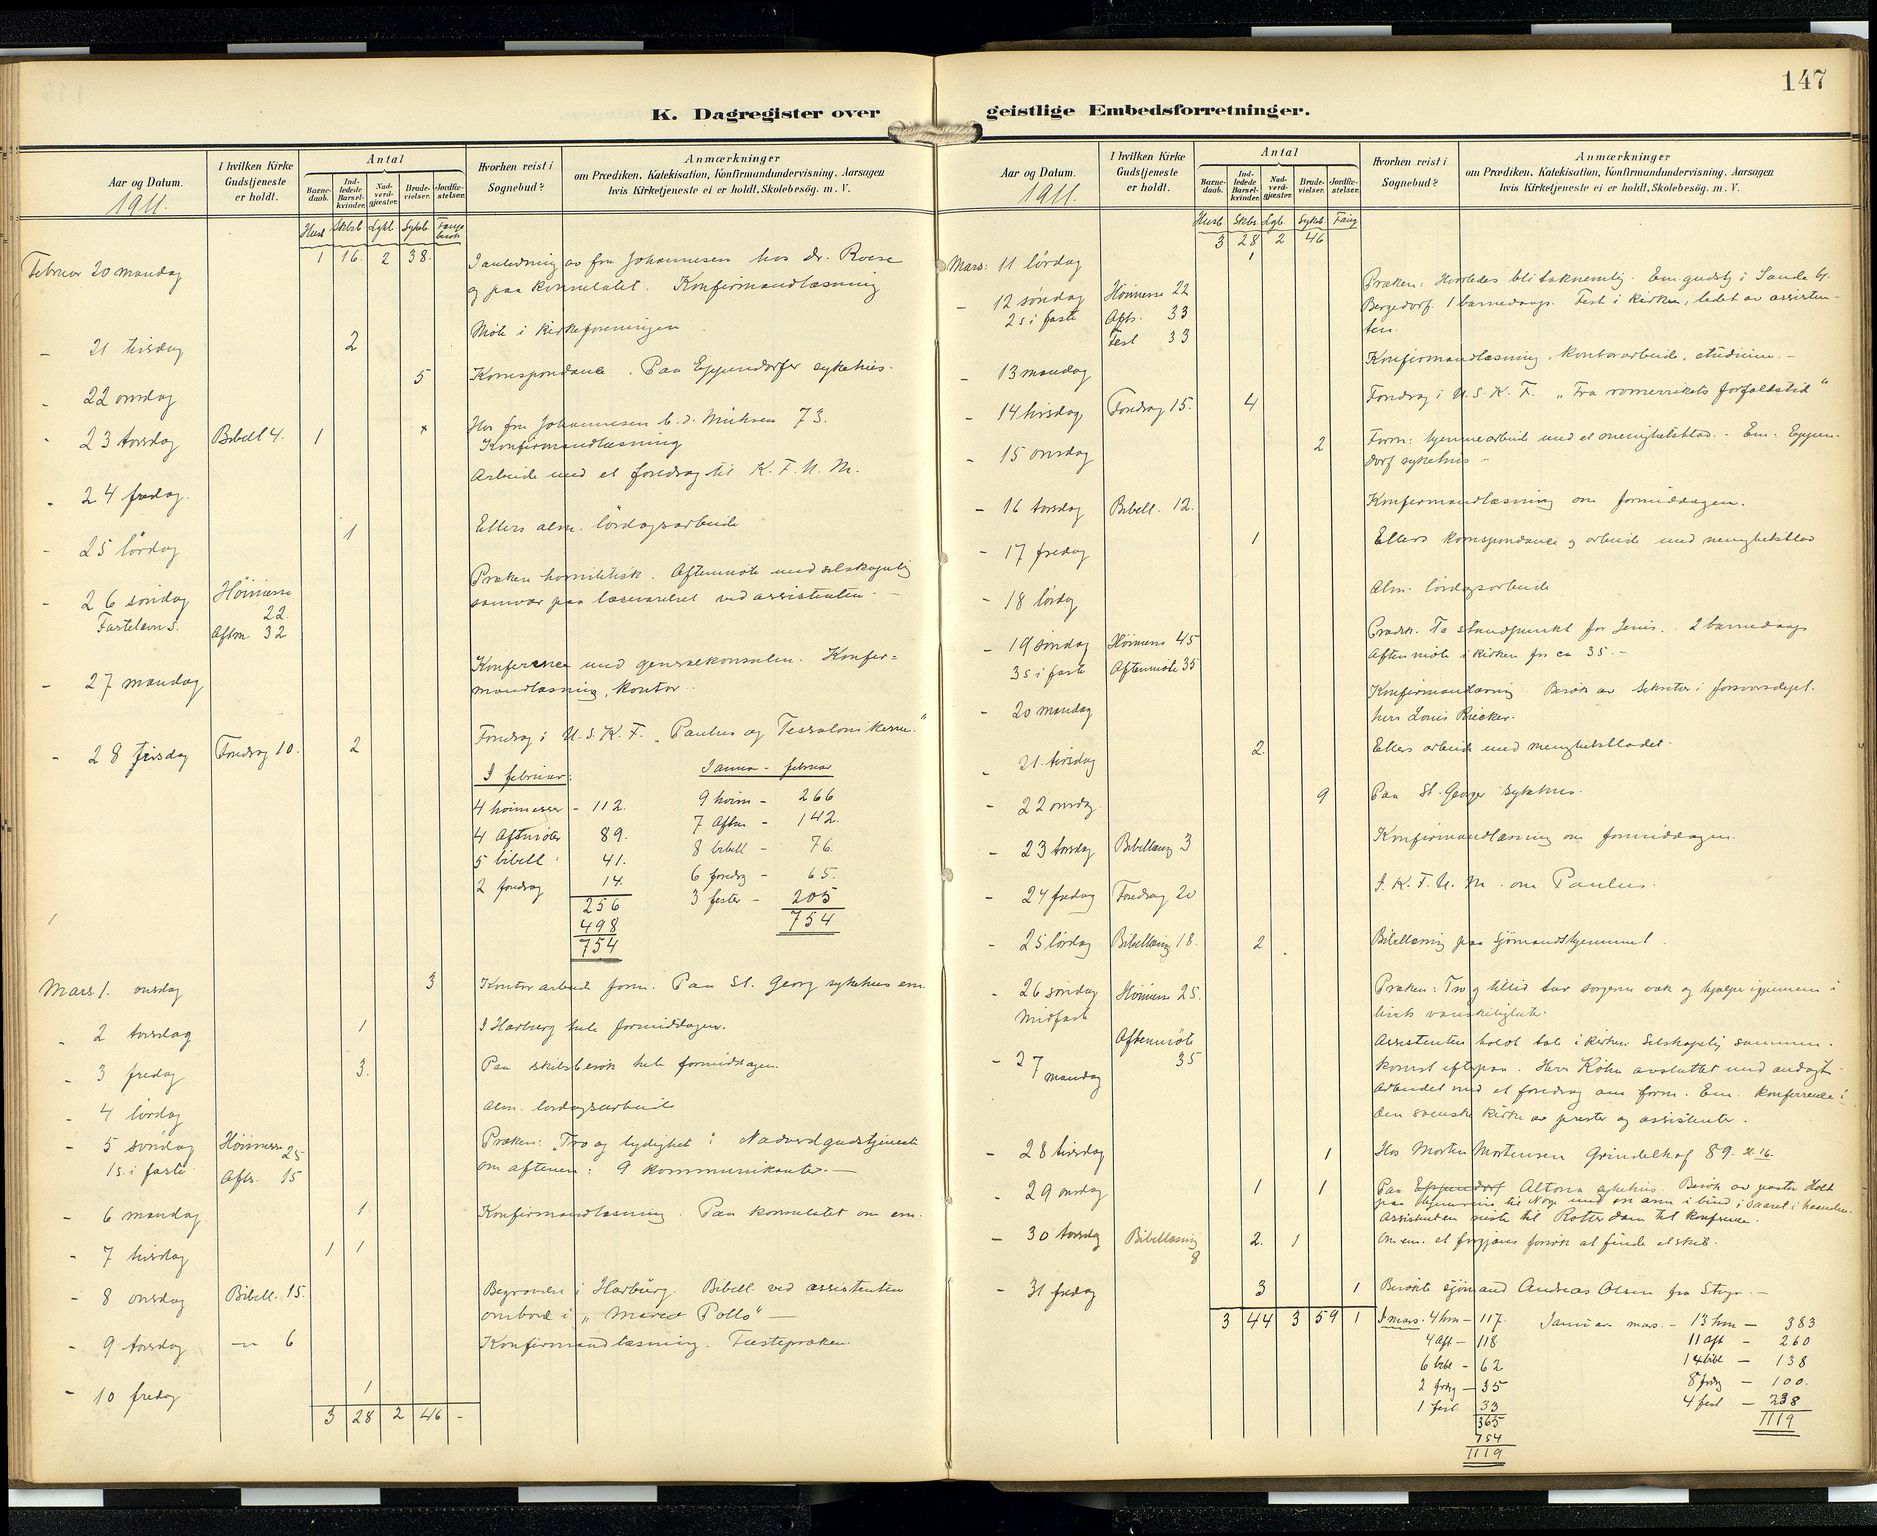 147
K. Dagregister over geistlige Embedsforretninger.
Aar og Datum.
1911.
I hvilken Kirke Gudstjeneste er holdt.
Antal
Barne-daab. Ind-ledede Barsel-kvinder. Nad-verd-gjæster. Brude-vielser. Jordfæ-stelser.
Hvorhen reist i Sognebud?
Anmærkninger
om Prædiken, Katekisation, Konfirmandundervisning, Aarsagen
hvis Kirketjeneste ei er holdt, Skolebesøg. m. V.
Husb Skbsb Lgbl Sykb. Fangebesøk
1 16. 2 38.
Februar 20 mandag I anledning av fru Johannesen hos dr. Roese
og paa konsulatet. Konfirmandlæsning
Møte i kirkeforeningen
- 21 tirsdag 2
Korrespondance. Paa Eppendorfer sykehus.
- 22 onsdag 5
- 23 torsdag Bibell 4. 1 x Hos fru Johannesen 73.
Konfirmandlæsning
Arbeide med et foredrag til K. F. U. M.
- 24 fredag.
- 25 lørdag 1 Ellers alm. lørdagsarbeide
- 26 søndag Høimesse 22. Præken homiletisk. Aftenmøte med selskapelig
Fastelavns. Aftm 32 samvær paa læseværelset ved assistenten -
- 27 mandag Konferense med generalkonsulen. Konfir=
mandlæsning, kontor.
- 28 tirsdag Foredrag 10. 2 Foredrag i U. S. K. F. "Paulus og Tessalonikerne."
I februar: Januar - februar
4 høimesser - 112. 9 høim - 266
4 Aftmøter 89. 7 Aftm - 142.
5 bibell 41. 8 bibell - 76.
2 foredrag 14. 6 foredrg - 65.
256 3 fester - 205
498 754
754
Mars 1. onsdag 3 Kontorarbeid form. Paa St. Georg sykehus em.
- 2 torsdag 1 I Harburg hele formiddagen.
- 3 fredag 3. Paa skibsbesøk hele formiddagen.
- 4 lørdag Alm. lørdagsarbeide
- 5 søndag Høimesse 25 Præken: "Tro og lydighet". Nadverdgudstjeneste
1 s. i faste Aftr. 15 om aftenen: 9 kommunikanter. -
- 6 mandag 1 Konfirmandlæsning. Paa konsulatet om em.
- 7 tirsdag 1 1
- 8 onsdag Bibell. 15. Begravelse i Harburg. Bibell ved assistenten
ombord i "Marco Pollo" -
- 9 torsdag -"- 6 Konfirmandlæsning. Festepræken.
- 10 fredag 1
3 28 2 46 -
Aar og Datum.
1911.
I hvilken Kirke Gudstjeneste er holdt.
Antal
Barne-daab. Ind-ledede Barsel-kvinder. Nad-verd-gjæster. Brude-vielser. Jordfæ-stelser.
Hvorhen reist i Sognebud?
Anmærkninger
om Prædiken, Katekisation, Konfirmandundervisning, Aarsagen
hvis Kirketjeneste ei er holdt, Skolebesøg. m. V.
Husb Skbs. Lgb. Sykb. Fang
3 28 2 46
Mars: 11 lørdag 1
- 12 søndag Høimesse 22 Præken: Hvorledes bli taknemlig. Em gudstj i Sande b/
2 s i faste Afts. 33 Bergedorf. 1 barnedaap. Fest i kirken, ledet av assisten-
Fest 33 ten.
- 13 mandag Konfirmandlæsning, kontorarbeide, studium. -
- 14 tirsdag, Foredrag 15. 4 Foredrag i U. S. K. F. "Fra romerrikets forfaldstid"
- 15 onsdag 2 Form: hjemmearbeide med et menighetsblad. - Em: Eppen-
dorf sykehus -
- 16 torsdag Bibell. 12. Konfirmandlæsning om formiddagen.
- 17 fredag 1 Ellers korrespondance og arbeide med menighetsblad
- 18 lørdag Alm. lørdagsarbeide
- 19 søndag Høimesse 45 Prædk. Ta standpunkt for Jesus. 2 barnedaap
3 s i faste Aftenmøte 35 Aftenmøte i kirken for ca 35. -
- 20 mandag Konfirmandlæsning. Besøk av sekretær i forsvarsdept.
herr Louis Riecker.
- 21. tirsdag 2. Ellers arbeide med menighetsbladet.
- 22 onsdag. 9 Paa St. Georger sykehus.
- 23 torsdag Bibellæsng 3 Konfirmandlæsning om formiddagen.
- 24 fredag Foredrag 20 I. K. F. U. M. om Paulus.
- 25 lørdag Bibellæsng 18. 2 Bibellæsning paa sjømandshjemmet.
- 26 søndag Høimesse 25. Præken: Tro og tillid tar sorgerne væk og hjælper igjennem i
Midfaste livets vanskeligheter.
Aftenmøte 35 Assistenten holdt tale i kirken. Selskapelig sammen-
komst efterpaa. Herr Køhn avsluttet med andagt.
- 27 mandag Arbeidet med et foredrag om form. Em. konferense i
den svenske kirke av prester og assistenter.
- 28 tirsdag 1 Hos Morten Mortensen Grindelhof 89. H. 16.
- 29 onsdag 1 1 Paa Eppendorf Altona sykehus. Besøk av pastor Holt
paa hjemreise til Norge med en arm i bind, saaret i haanden.
Assistenten reiste til Rotterdam til konferense.
- 30 torsdag Bibellæsning 8 2. 1 Om em. et forgjæves forsøk at finde et skib.
- 31 fredag 3 1 Besøkte sjømand Andreas Olsen fra Stryn. -
3 44 3 59 1 I mars. 4 hm - 117. Januar. mars. - 13 hm - 383
4 aft - 118 11 aft - 260
6 bibl - 62 14 bibl - 138
2 fordrg - 35 8 fordrg - 100.
1 fest 33 4 fest - 238
365 1119
754
1119